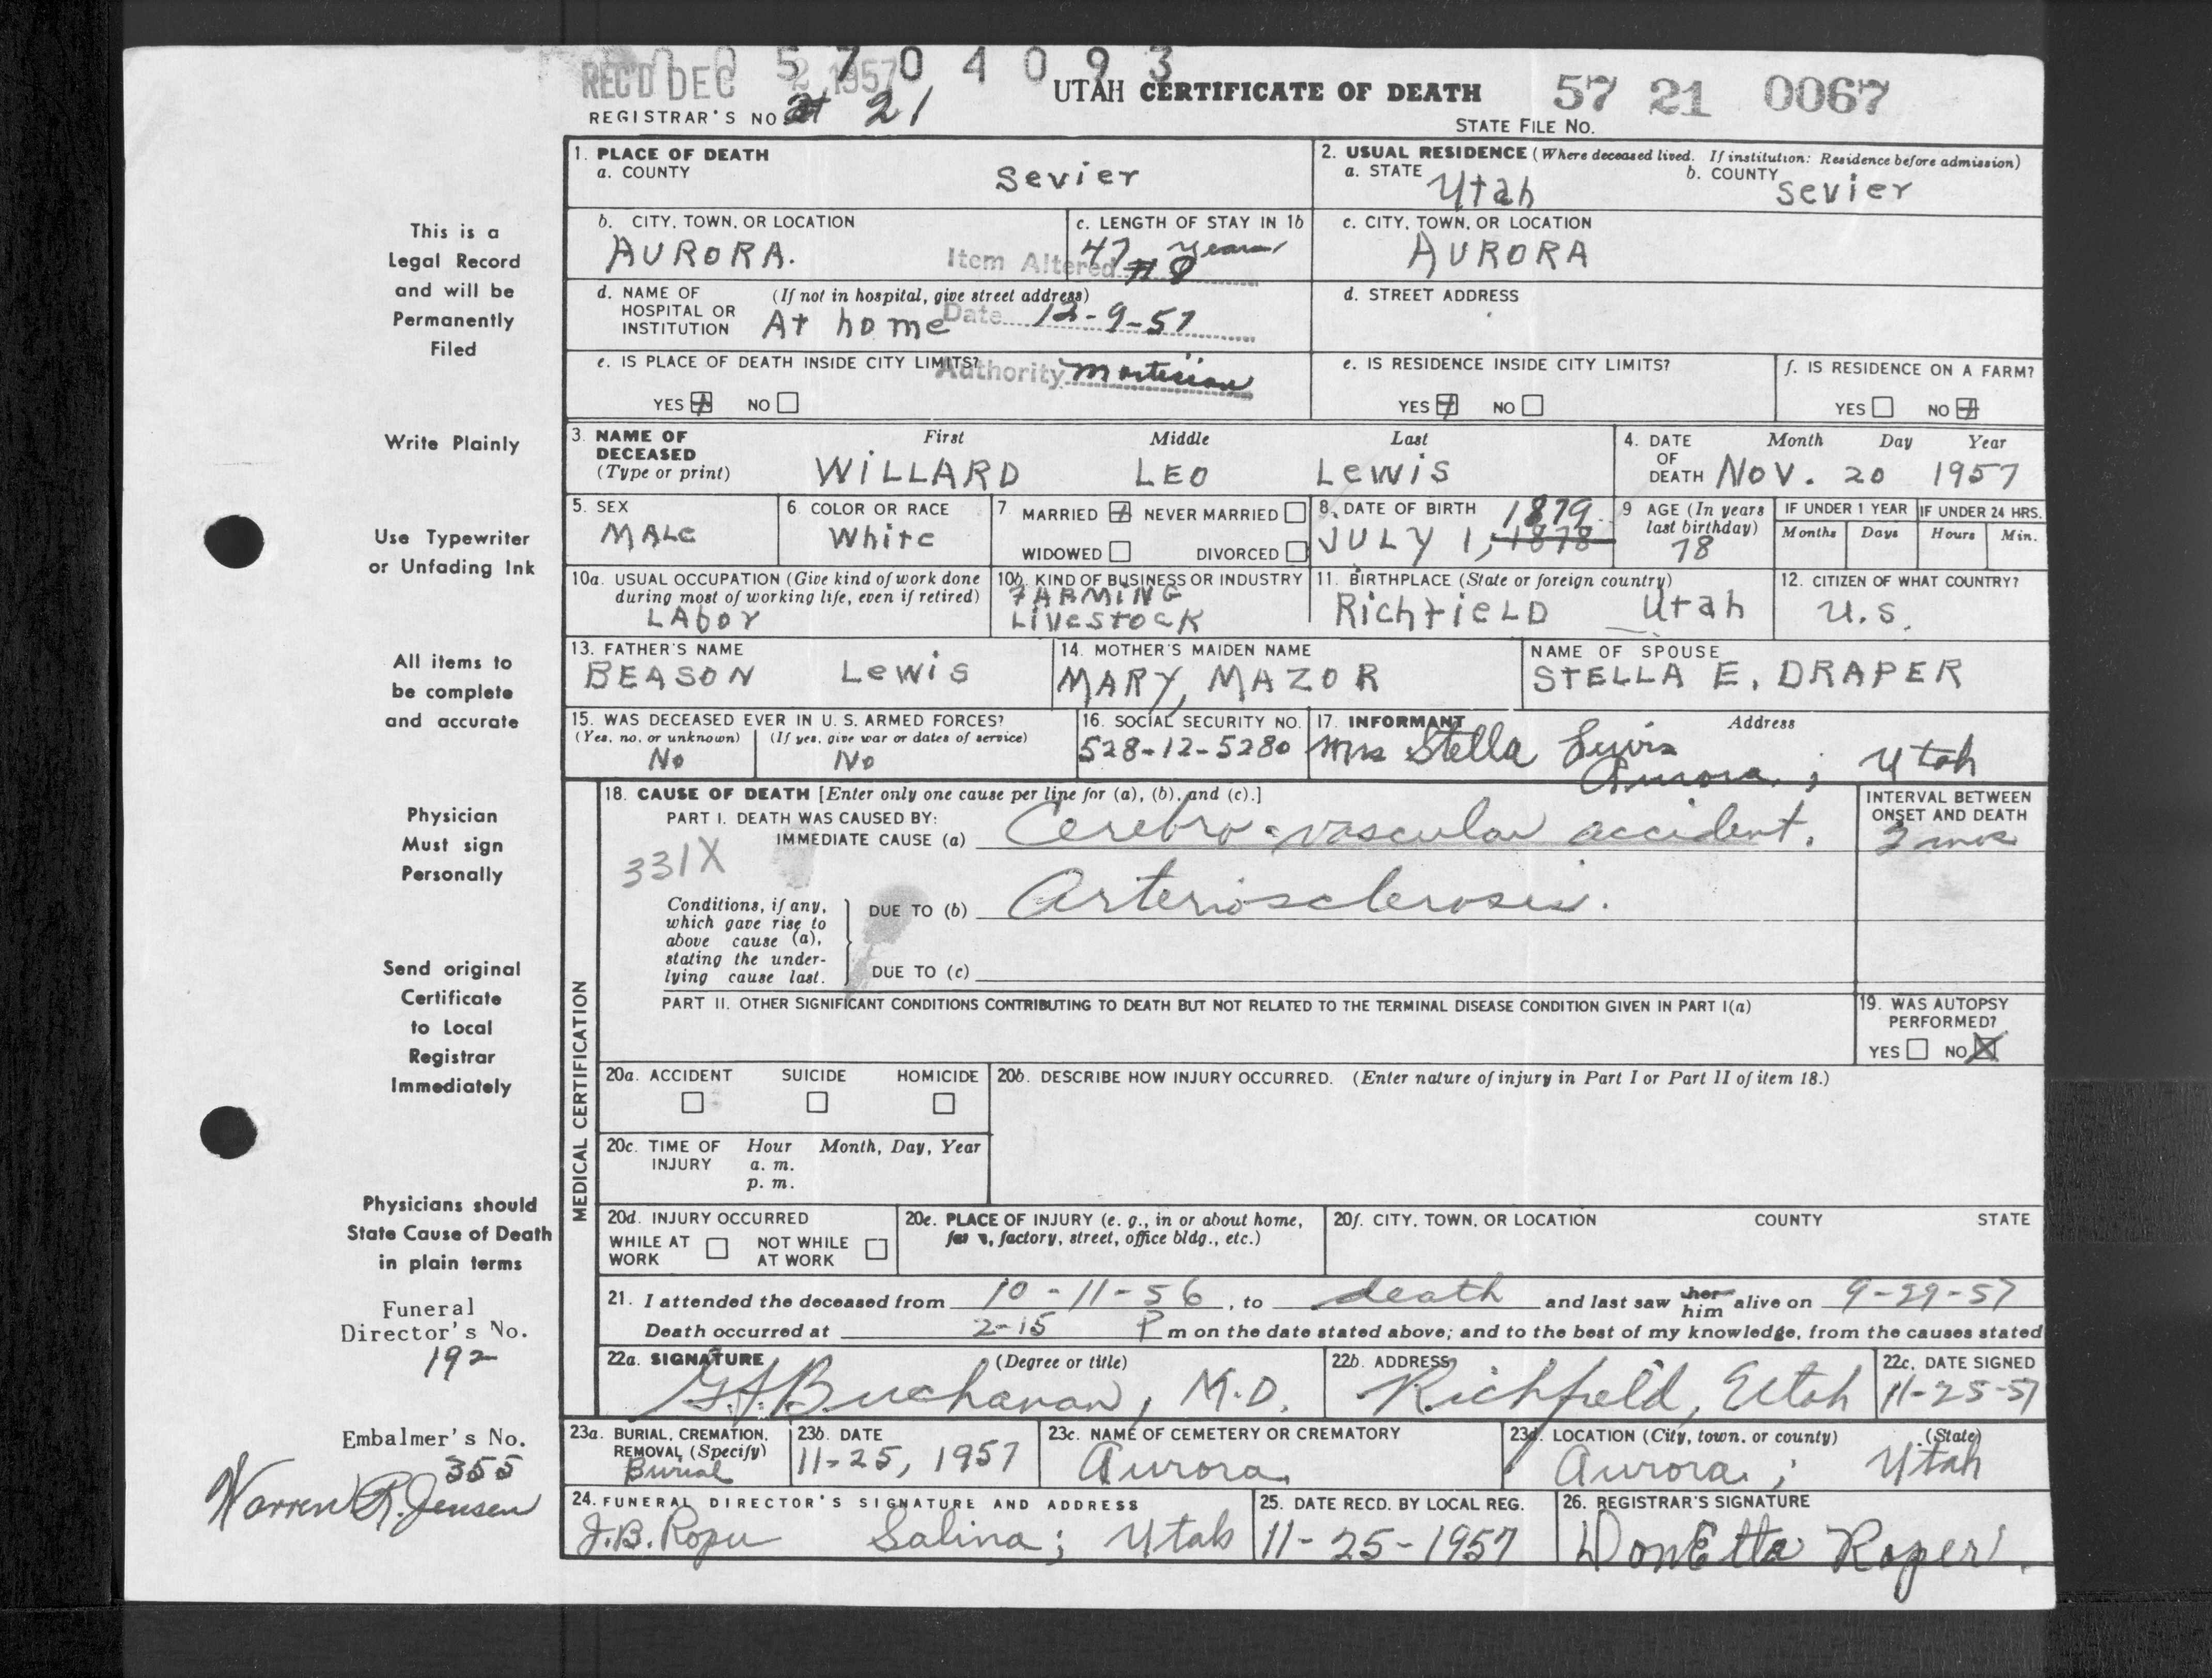 0 0 5 7 0 4 0 9 3
REC'D DEC 2 1957
UTAH CERTIFICATE OF DEATH
57 21 0067
REGISTRAR'S NO. 21
STATE FILE NO.
1. PLACE OF DEATH
a. COUNTY Sevier
2. USUAL RESIDENCE (Where deceased lived. If institution: Residence before admission)
a. STATE Utah b. COUNTY Sevier
b. CITY, TOWN, OR LOCATION
AURORA.
c. LENGTH OF STAY IN 1b
47 years
c. CITY, TOWN, OR LOCATION
AURORA
Item Altered #8
d. NAME OF HOSPITAL OR INSTITUTION (If not in hospital, give street address)
At home
Date 12-9-57
d. STREET ADDRESS
e. IS PLACE OF DEATH INSIDE CITY LIMITS?
Authority mortician
YES NO
e. IS RESIDENCE INSIDE CITY LIMITS?
YES NO
f. IS RESIDENCE ON A FARM?
YES NO
3. NAME OF DECEASED (Type or print)
First Middle Last
WILLARD LEO LEWIS
4. DATE OF DEATH Month Day Year
NOV. 20 1957
5. SEX
MALE
6. COLOR OR RACE
White
7. MARRIED NEVER MARRIED
WIDOWED DIVORCED
8. DATE OF BIRTH 1879
JULY 1, 1878
9 AGE (In years last birthday)
78
IF UNDER 1 YEAR
Months Days
IF UNDER 24 HRS.
Hours Min.
10a. USUAL OCCUPATION (Give kind of work done during most of working life, even if retired)
LABOR
10b. KIND OF BUSINESS OR INDUSTRY
FARMING
LIVESTOCK
11. BIRTHPLACE (State or foreign country)
RICHFIELD Utah
12. CITIZEN OF WHAT COUNTRY?
U.S.
13. FATHER'S NAME
BEASON LEWIS
14. MOTHER'S MAIDEN NAME
MARY, MAZOR
NAME OF SPOUSE
STELLA E. DRAPER
15. WAS DECEASED EVER IN U. S. ARMED FORCES?
(Yes, no, or unknown) (If yes, give war or dates of service)
No No
16. SOCIAL SECURITY NO.
528-12-5280
17. INFORMANT Address
Mrs Stella Lewis
Aurora, ; Utah
18. CAUSE OF DEATH [Enter only one cause per line for (a), (b), and (c).]
PART I. DEATH WAS CAUSED BY:
IMMEDIATE CAUSE (a) Cerebro-vascular accident.
INTERVAL BETWEEN ONSET AND DEATH
331X
Conditions, if any, which gave rise to above cause (a), stating the underlying cause last.
DUE TO (b) Arteriosclerosis.
DUE TO (c)
PART II. OTHER SIGNIFICANT CONDITIONS CONTRIBUTING TO DEATH BUT NOT RELATED TO THE TERMINAL DISEASE CONDITION GIVEN IN PART I(a)
19. WAS AUTOPSY PERFORMED?
YES NO
20a. ACCIDENT SUICIDE HOMICIDE
20b. DESCRIBE HOW INJURY OCCURRED. (Enter nature of injury in Part I or Part II of item 18.)
20c. TIME OF INJURY Hour Month, Day, Year
a. m.
p. m.
20d. INJURY OCCURRED
WHILE AT WORK NOT WHILE AT WORK
20e. PLACE OF INJURY (e. g., in or about home, factory, street, office bldg., etc.)
20f. CITY, TOWN, OR LOCATION COUNTY STATE
21. I attended the deceased from 10-11-56, to death and last saw her him alive on 9-29-57
Death occurred at 2-15 P m on the date stated above; and to the best of my knowledge, from the causes stated
22a. SIGNATURE (Degree or title)
Buchanan, M.D.
22b. ADDRESS
Richfield, Utah
22c. DATE SIGNED
11-25-57
23a. BURIAL, CREMATION, REMOVAL (Specify)
Burial
23b. DATE
11-25, 1957
23c. NAME OF CEMETERY OR CREMATORY
Aurora
23d. LOCATION (City, town, or county) (State)
Aurora ; Utah
24. FUNERAL DIRECTOR'S SIGNATURE AND ADDRESS
J.B. Roper Salina; Utah
25. DATE RECD. BY LOCAL REG.
11-25-1957
26. REGISTRAR'S SIGNATURE
DonEtta Roper
MEDICAL CERTIFICATION
This is a
Legal Record
and will be
Permanently
Filed
Write Plainly
Use Typewriter
or Unfading Ink
All items to
be complete
and accurate
Physician
Must sign
Personally
Send original
Certificate
to Local
Registrar
Immediately
Physicians should
State Cause of Death
in plain terms
Funeral
Director's No.
192
Embalmer's No.
355
Warren R. Jensen